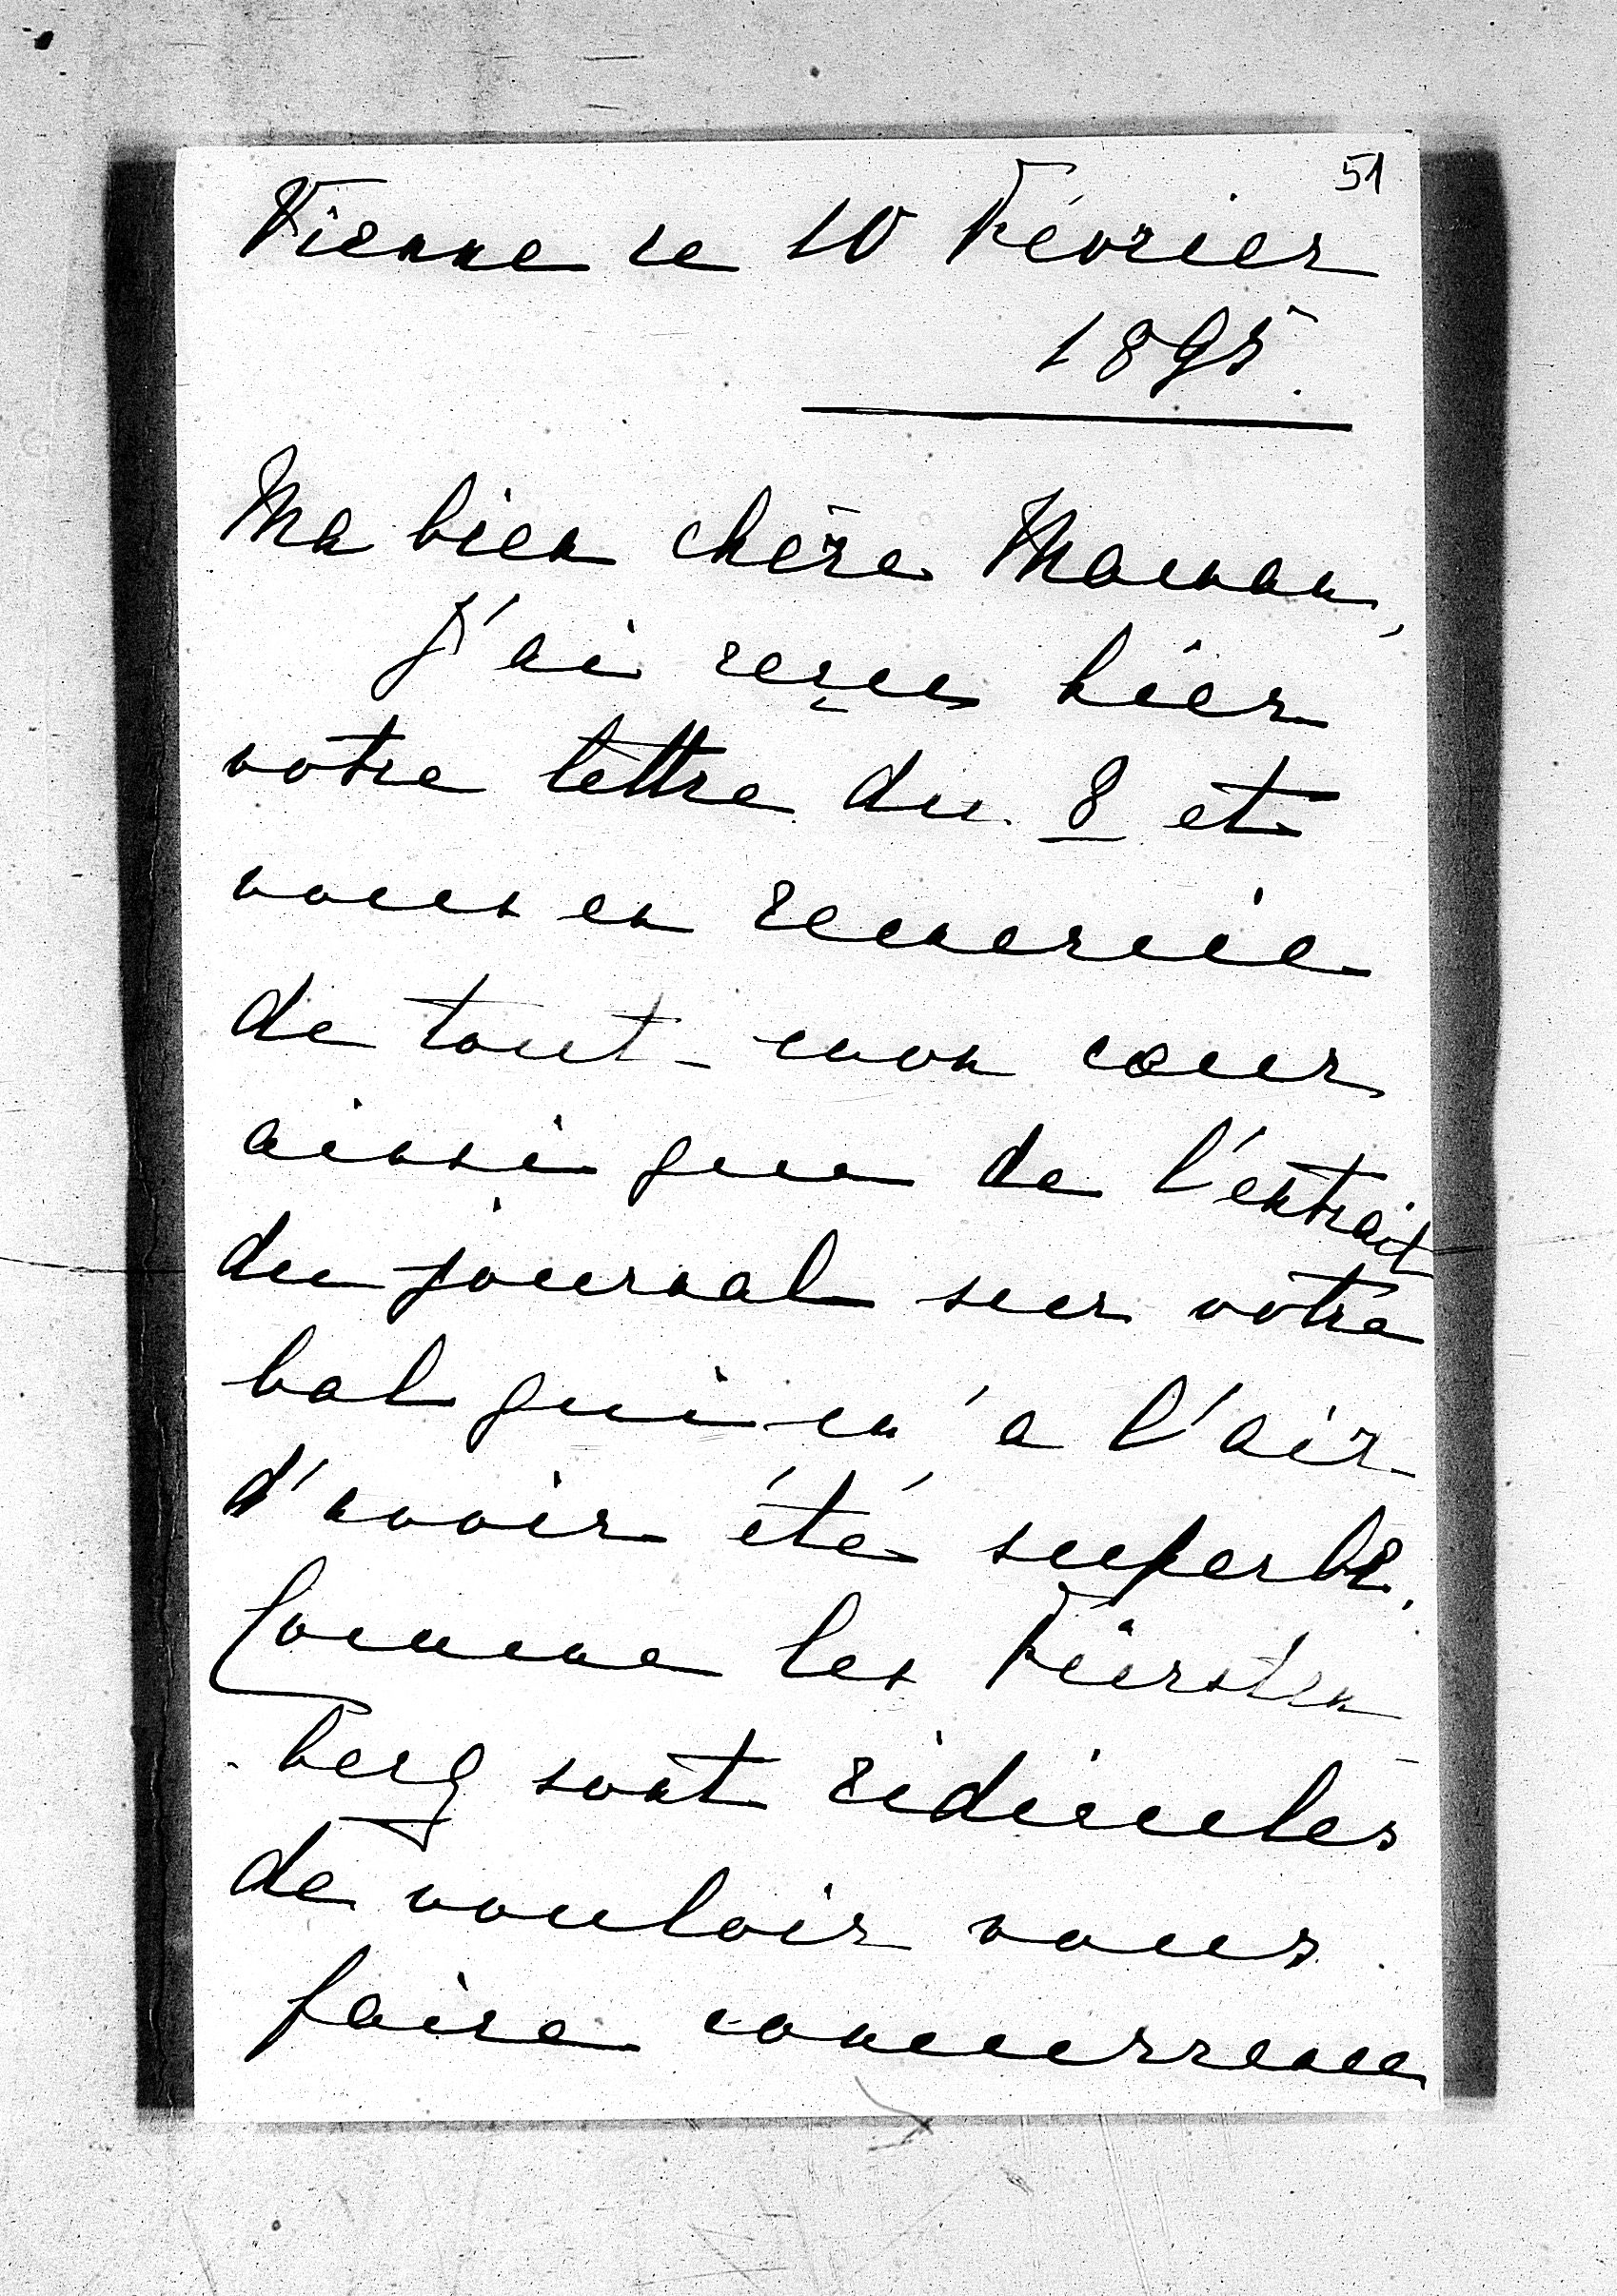 51
Vienne le 10 Février
1895.
Ma bien chère Maman,
J'ai reçue hier
votre lettre du 8 et
vous en remercie
de tout mon cœur
ainsi que de l'extrait
du journal sur votre
bal qui m'a l'air
d'avoir été superbe.
Comme les Fürsten
-berg sont ridicules
de vouloir vous
faire concurrence